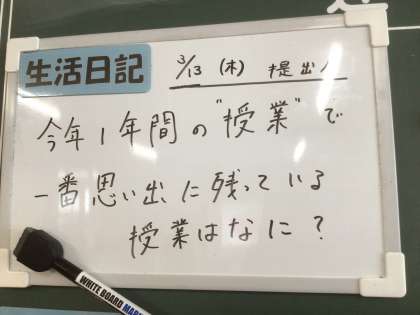 生活日記
3/13 (木) 提出〆
今年1年間の"授業"で
一番思い出に残っている
授業はなに?
WHITE BOARD MAR